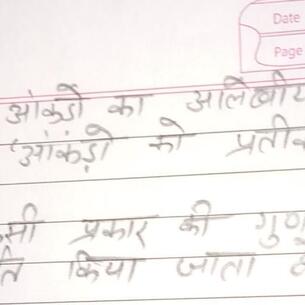 Date
Page
आंकड़ो का आलेखीय
आंकड़ो को
प्रकार की गुण
किया जाता